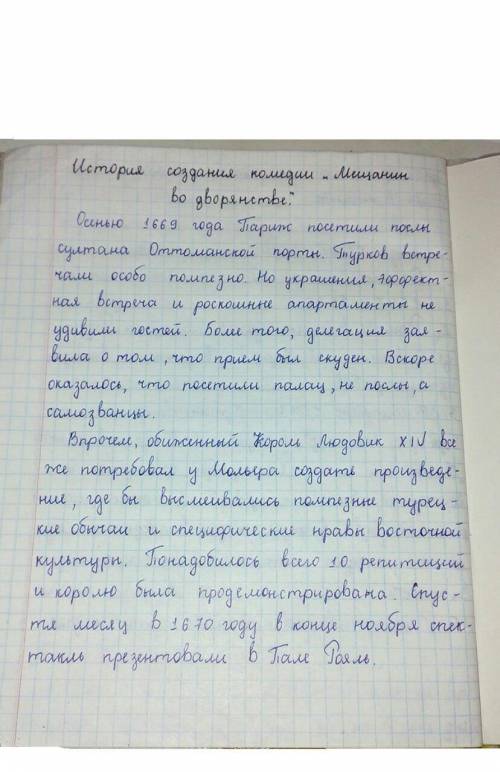 История создания комедии „Мещанин
во дворянстве."
Осенью 1669 года Париж посетили послы
султана Оттоманской порты. Турков встре-
чали особо помпезно. Но украшения, эффект-
ная встреча и роскошные апартаменты не
удивили гостей. Более того, делегация зая-
вила о том, что прием был скуден. Вскоре
оказалось, что посетили палац, не послы, а
самозванцы.
Впрочем, обиженный Король Людовик XIV все
же потребовал у Мольера создать произведе-
ние, где бы высмеивались помпезные турец-
кие обычаи и специфические нравы восточной
культуры. Понадобилось всего 10 репитиций
и королю была продемонстрирована. Спус-
тя месяц в 1670 году в конце ноября спек-
такль презентовали в Пале Рояль.